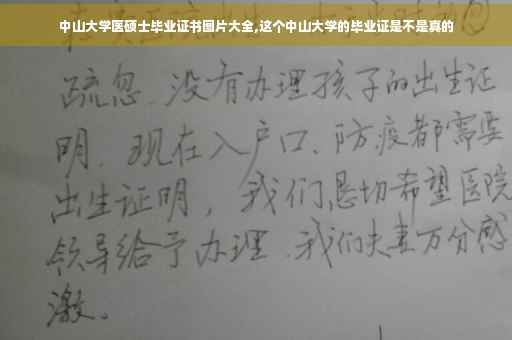 中山大学医硕士毕业证书图片大全,这个中山大学的毕业证是不是真的
疏忽、没有办理孩子的出生证
明、现在入户口、防疫都需要
出生证明，我们恳切希望医院
领导给予办理、我们夫妻万分感
激。